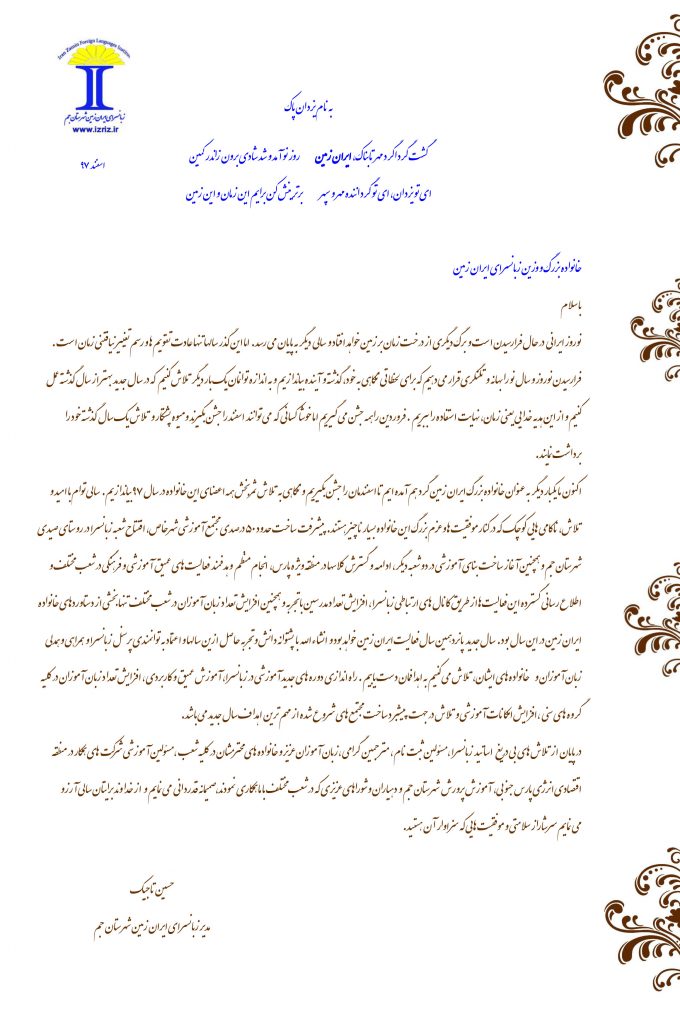 Iran Zamin Foreign Languages Institute
زبانسرای ایران زمین شهرستان جم
www.izriz.ir
به نام یزدان پاک
اسفند ۹۷
گشت گرداگرد مهر تابناک، ایران زمین روز نو آمد و شد شادی برون زاندر کمین
ای تو یزدان، ای تو گرداننده مهر و سپهر برترینش کن برایم این زمان و این زمین
خانواده بزرگ و وزین زبانسرای ایران زمین
با سلام
نوروز ایرانی در حال فرارسیدن است و برگ دیگری از درخت زمان بر زمین خواهد افتاد و سالی دیگر به پایان می رسد. اما این گذر سالها تنها عادت تقویم ها و رسم تغییر نیافتنی زمان است.
فرارسیدن نوروز و سال نو را بهانه و تلنگری قرار می دهیم که برای لحظاتی نگاهی به خود، گذشته و آینده بیاندازیم و به اندازه توانمان یک بار دیگر تلاش کنیم که در سال جدید بهتر از سال گذشته عمل
کنیم و از این هدیه خدایی یعنی زمان، نهایت استفاده را ببریم. فروردین را همه جشن می گیریم اما خوشا کسانی که می توانند اسفند را جشن بگیرند و میوه پشتکار و تلاش یک سال گذشته خود را
برداشت نمایند.
اکنون ما یکبار دیگر به عنوان خانواده بزرگ ایران زمین گرد هم آمده ایم تا اسفندمان را جشن بگیریم و نگاهی به تلاش ثمربخش همه اعضای این خانواده در سال ۹۷ بیاندازیم. سالی توام با امید و
تلاش، ناکامی هایی کوچک که در کنار موفقیت ها و عزم بزرگ این خانواده بسیار ناچیز هستند. پیشرفت ساخت حدود ۵۰ درصدی مجتمع آموزشی شهرخاص، افتتاح شعبه زبانسرا در روستای صیدی
شهرستان جم و همچنین آغاز ساخت بنای آموزشی در دو شعبه دیگر، ادامه و گسترش کلاسها در منطقه ویژه پارس، انجام منظم و هدفمند فعالیت های عمیق آموزشی و فرهنگی در شعب مختلف و
اطلاع رسانی گسترده این فعالیت ها از طریق کانال های ارتباطی زبانسرا، افزایش تعداد مدرسین با تجربه و همچنین افزایش تعداد زبان آموزان در شعب مختلف تنها بخشی از دستاوردهای خانواده
ایران زمین در این سال بود. سال جدید پانزدهمین سال فعالیت ایران زمین خواهد بود و انشاء الله با پشتوانه دانش و تجربه حاصل از این سالها و اعتماد به توانمندی پرسنل زبانسرا و همراهی و همدلی
زبان آموزان و خانواده های ایشان، تلاش می کنیم به اهدافمان دست یابیم. راه اندازی دوره های جدید آموزشی در زبانسرا، آموزش عمیق و کاربردی، افزایش تعداد زبان آموزان در کلیه
گروه های سنی، افزایش امکانات آموزشی و تلاش در جهت پیشبرد ساخت مجتمع های شروع شده از مهم ترین اهداف سال جدید می باشد.
در پایان از تلاش های بی دریغ اساتید زبانسرا، مسئولین ثبت نام، مترجمین گرامی، زبان آموزان عزیز و خانواده های محترمشان در کلیه شعب، مسئولین آموزشی شرکت های همکار در منطقه
اقتصادی انرژی پارس جنوبی، آموزش پرورش شهرستان جم و دهیاران و شوراهای عزیزی که در شعب مختلف با ما همکاری نمودند، صمیمانه قدردانی می نمایم و از خداوند برایتان سالی آرزو
می نمایم سرشار از سلامتی و موفقیت هایی که سزاوار آن هستید.
حسین تاجیک
مدیر زبانسرای ایران زمین شهرستان جم